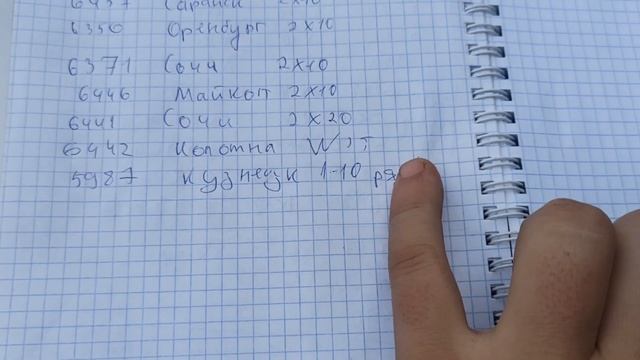 6437 Саранск 2x10
6350 Оренбург 2x10
6371 Сочи 2x10
6446 Майкоп 2x10
6441 Сочи 2x20
6442 Коломна
5987 Кузнецк 1-10